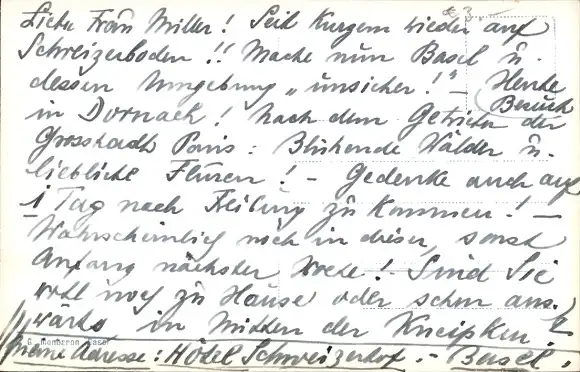 Liebe Frau Miller! Seit Kurzem wieder auf
Schweizerboden!! Mache nun Basel u.
dessen Umgebung „unsicher!" – Heute
Besuch
in Dornach! Nach dem Getriebe der
Grosstadt Paris: Blühende Wälder u.
liebliche Fluren! – Gedenke auch auf
1 Tag nach Freiburg zu kommen! –
Wahrscheinlich noch in dieser, sonst
Anfang nächster Woche! Sind Sie
wohl noch zu Hause oder schon aus-
wärts in Mitten der
Meine Adresse: Hôtel Schweizerhof. – Basel.